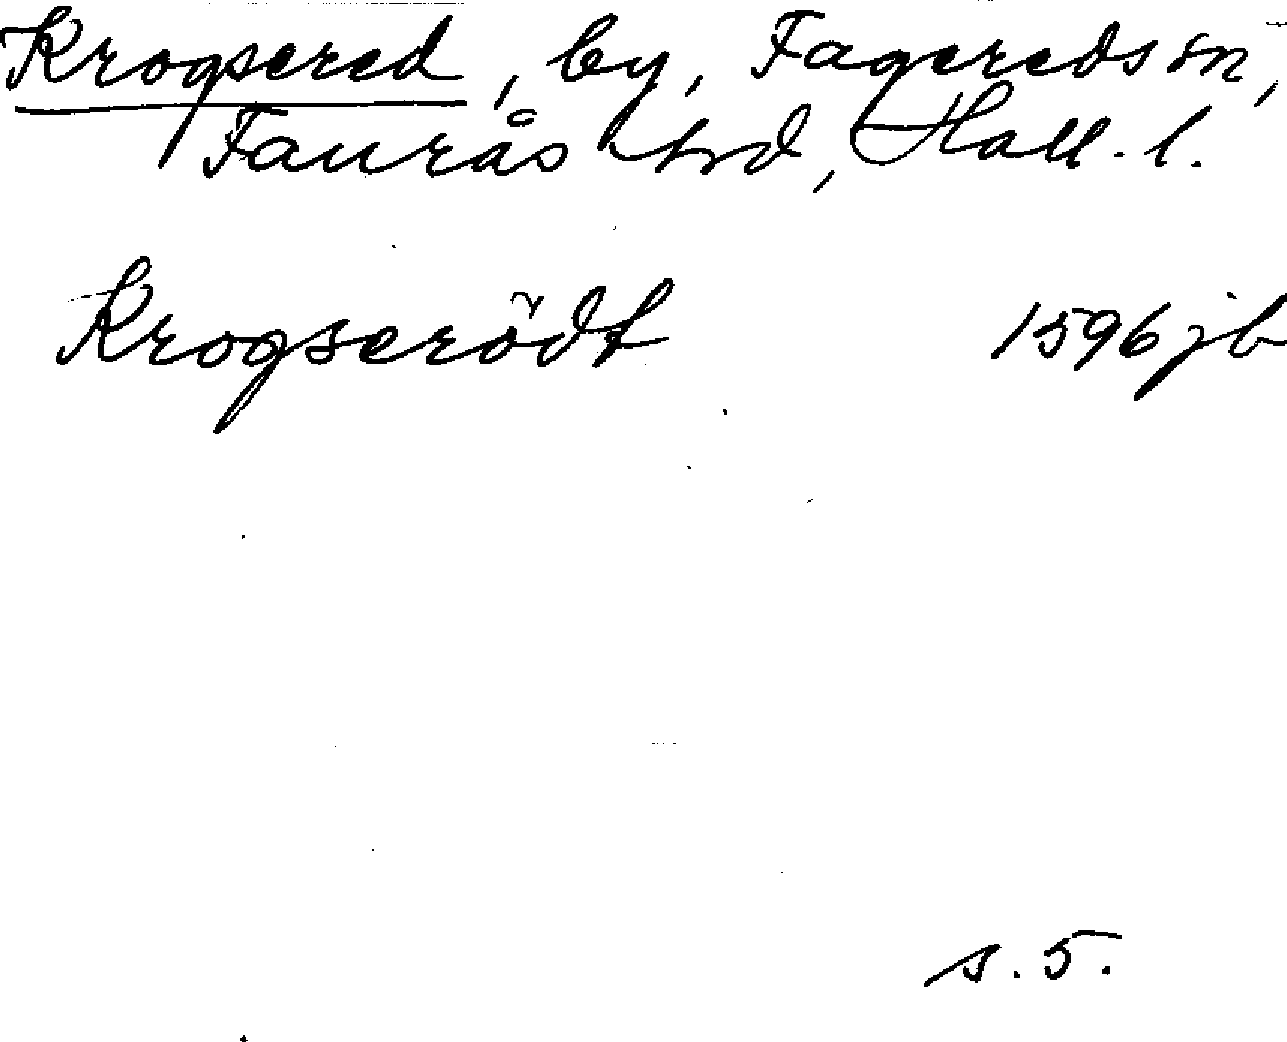 Krogsered, by, Fagereds sn,
Faurås hd, Hall. l.
Krogserödt 1596 jb
s. 5.